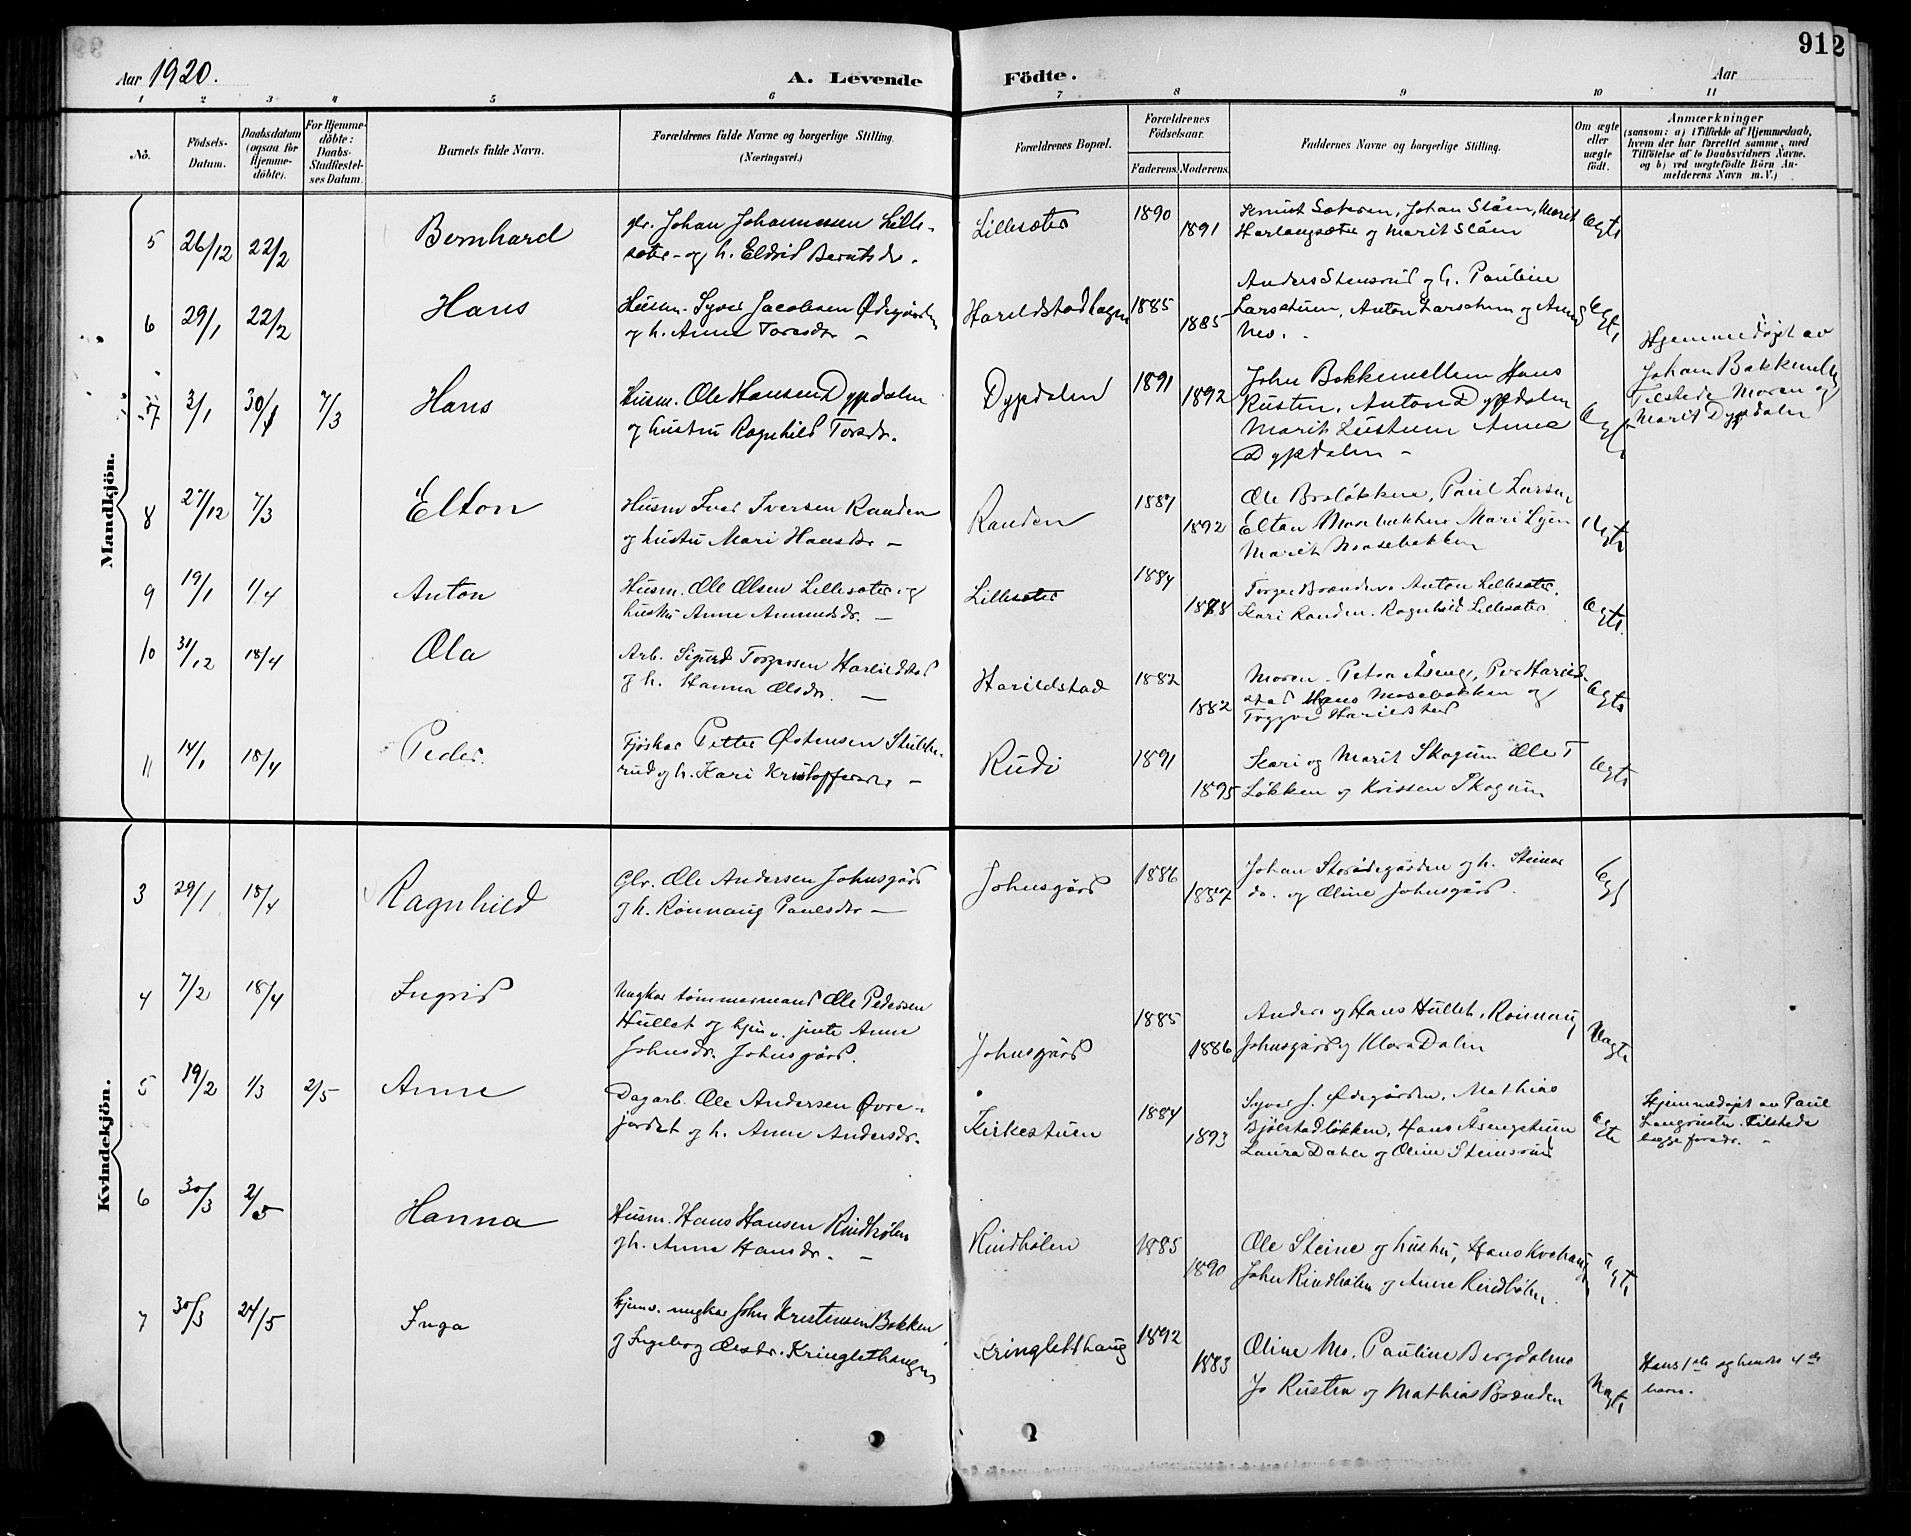 912
Aar 1920.
A. Levende Födte.
Aar
1 2 3 4 5 6 7 8 9 10 11
No.
Födsels-Datum.
Daabsdatum (ogsaa for Hjemme-döbte).
For Hjemme-döbte: Daabs-Stadfæstel-ses Datum.
Barnets fulde Navn.
Forældrenes fulde Navne og borgerlige Stilling. (Næringsvei.)
Forældrenes Bopæl.
Forældrenes Födselsaar.
Faderens.
Moderens.
Faddernes Navne og borgerlige Stilling.
Om ægte eller uægte født.
Anmærkninger
(saasom: a) i Tilfælde af Hjemmedaab,
hvem der har forrettet samme, med
Tilföielse af to Daabsvidners Navne.
og b) ved uegtefödte Börn An-
melderens Navn m.V.)
Mandkjön.
5 26/12 22/2 Bernhard
gbr. Johan Johannessen Lille-
sæter og h. Eldrid Berntsdr.
Lillesæter 1890 1891
Knut Sæteren, Johan Slåen, Marit
Harlaugsæter og Marit Slåen
Ægte
6 29/1 22/2 Hans
Husm. Syver Jacobsen Ødegården
og h. Anne Torasdr —
Harildstadhagen 1885 1885
Anders Stensrud og h. Pauline
Larsstuen, Anton Larsstuen og Anne
Mo.
Ægte
7 3/1 30/1 7/3 Hans
Husm. Ole Hansen Dypdalen
og hustru Ragnhild Torsdr.
Dypdalen 1891 1892
John Bakkemellem Hans
Rusten, Anton Dypdalen
Marit Lustuen Anne
Dypdalen —
Ægte
Hjemmedøpt av
Johan Bakkemellem
Tilstede Moren og
Marit Dypdalen
8 27/12 7/3 Elton
Husm Iver Iversen Randen
og hustru Mari Hansdr —
Randen 1887 1892
Ole Braløkken, Paul Larsen
Elton Mosebakken Mari Lyen
Marit Mosebakken
Ægte
9 19/1 1/4 Anton
Husm. Ole Olsen Lillesæter og
hustru Anne Amundsdr. —
Lillesæter 1884 1888
Torger Brænden Anton Lillesæter.
Kari Randen. Ragnhild Lillesæter
Ægte.
10 31/12 18/4 Ola
Arb. Sigurd Torgersen Harildstad
og h. Hanna Olsdr. —
Harildstad 1882 1882
Moren. Petra Åseng, Per Harild-
stad Hans Mosebakken og
Trygve Harildstad
Ægte
11 14/1 18/4 Peder.
Fjøskar Petter Østensen Stubbe-
rud og h. Kari Kristoffersdr —
Rudi 1891 1895
Kari og Marit Skogum Ole T
Løkken og Krissen Skogum
Ægte
Kvindekjön.
3 29/1 18/4 Ragnhild
Gbr. Ole Andersen Johnsgård
og h. Rønnaug Paulsdr —
Johnsgård 1886 1887
Johan Storødegården og h. Steinar
do. og Oline Johnsgård.
Ægt
4 7/2 18/4 Ingrid
Ungkar tømmermand Ole Pedersen
Hullet og hjv. jente Anne
Johnsdr. Johnsgård.
Johnsgård 1885 1886
Anders og Hans Hullet, Rønnaug
Johnsgård og Klara Dalen
Uægte
5 19/2 1/3 2/5 Anne
Dagarb. Ole Andersen Øvre-
jordet og h. Anne Andersdr.
Kirkestuen 1884 1893
Syver J. Ødegården, Mathias
Bjølstadløkken, Hans Åsengstuen
Laura Dahle og Oline Steinsrud
Ægte
Hjemmedøpt av Paul
Langrusten. Tilstede
begge forældr.
6 30/3 2/5 Hanna
Husm. Hans Hansen Rindhølen
og h. Anne Hansdr. —
Rindhølen 1885 1890
Ole Steine og hustru, Hans Kvehaug
John Rindhølen og Anne Rindhølen.
Ægte
7 30/3 24/5 Inga
Hjemv. ungkar John Kristensen Bakken
og Ingeborg Olsdr. Kringlethaugen
Kringletthaug 1892 1883
Oline Mo. Pauline Bergdalen
Jo Rusten og Mathias Brænden
Uægte
Hans 1ste og hendes 4de
barn.